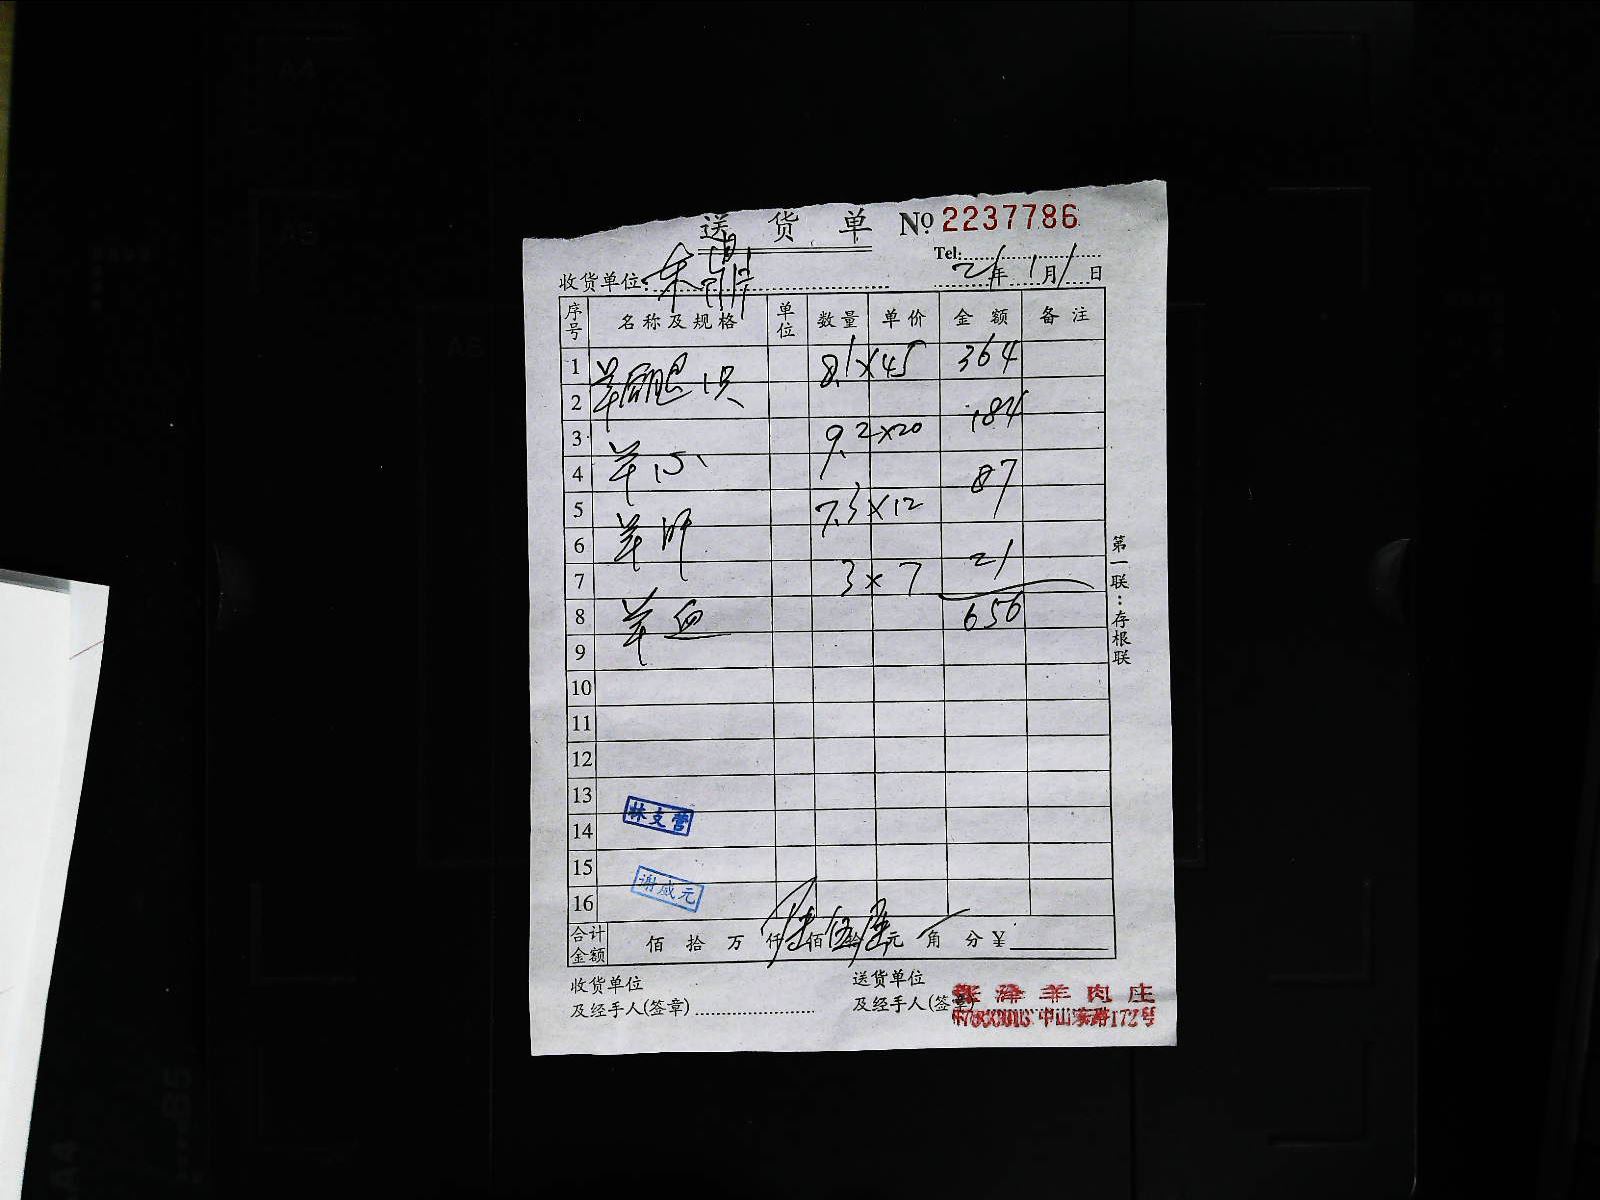 送 货 单 No 2237786
Tel:
收货单位: 21年1月1日
序号 名称及规格 单位 数量 单价 金额 备注
1 羊后腿1只 8.1×45 364
2
3 羊心 9.2×20 184
4
5 羊肝 7.3×12 87
6
7 羊血 3×7 21
8 656
9
10
11
12
13
14
15
16
林支营
谢成元
合计金额 佰 拾 万 仟 陆佰 伍拾 陆元 角 分 ¥
收货单位 送货单位
及经手人(签章) 及经手人(签章)
羊肉庄
中山东路172号
第一联:存根联